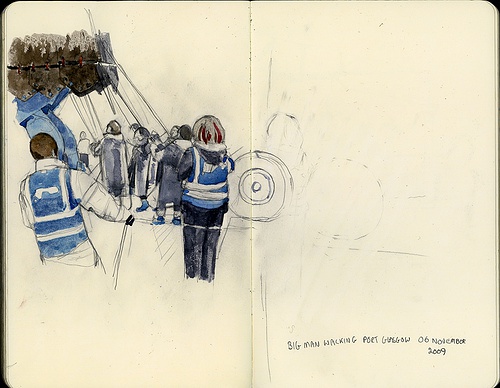 BIG MAN WALKING PORT GLASGOW 06 NOVEMBER
2009